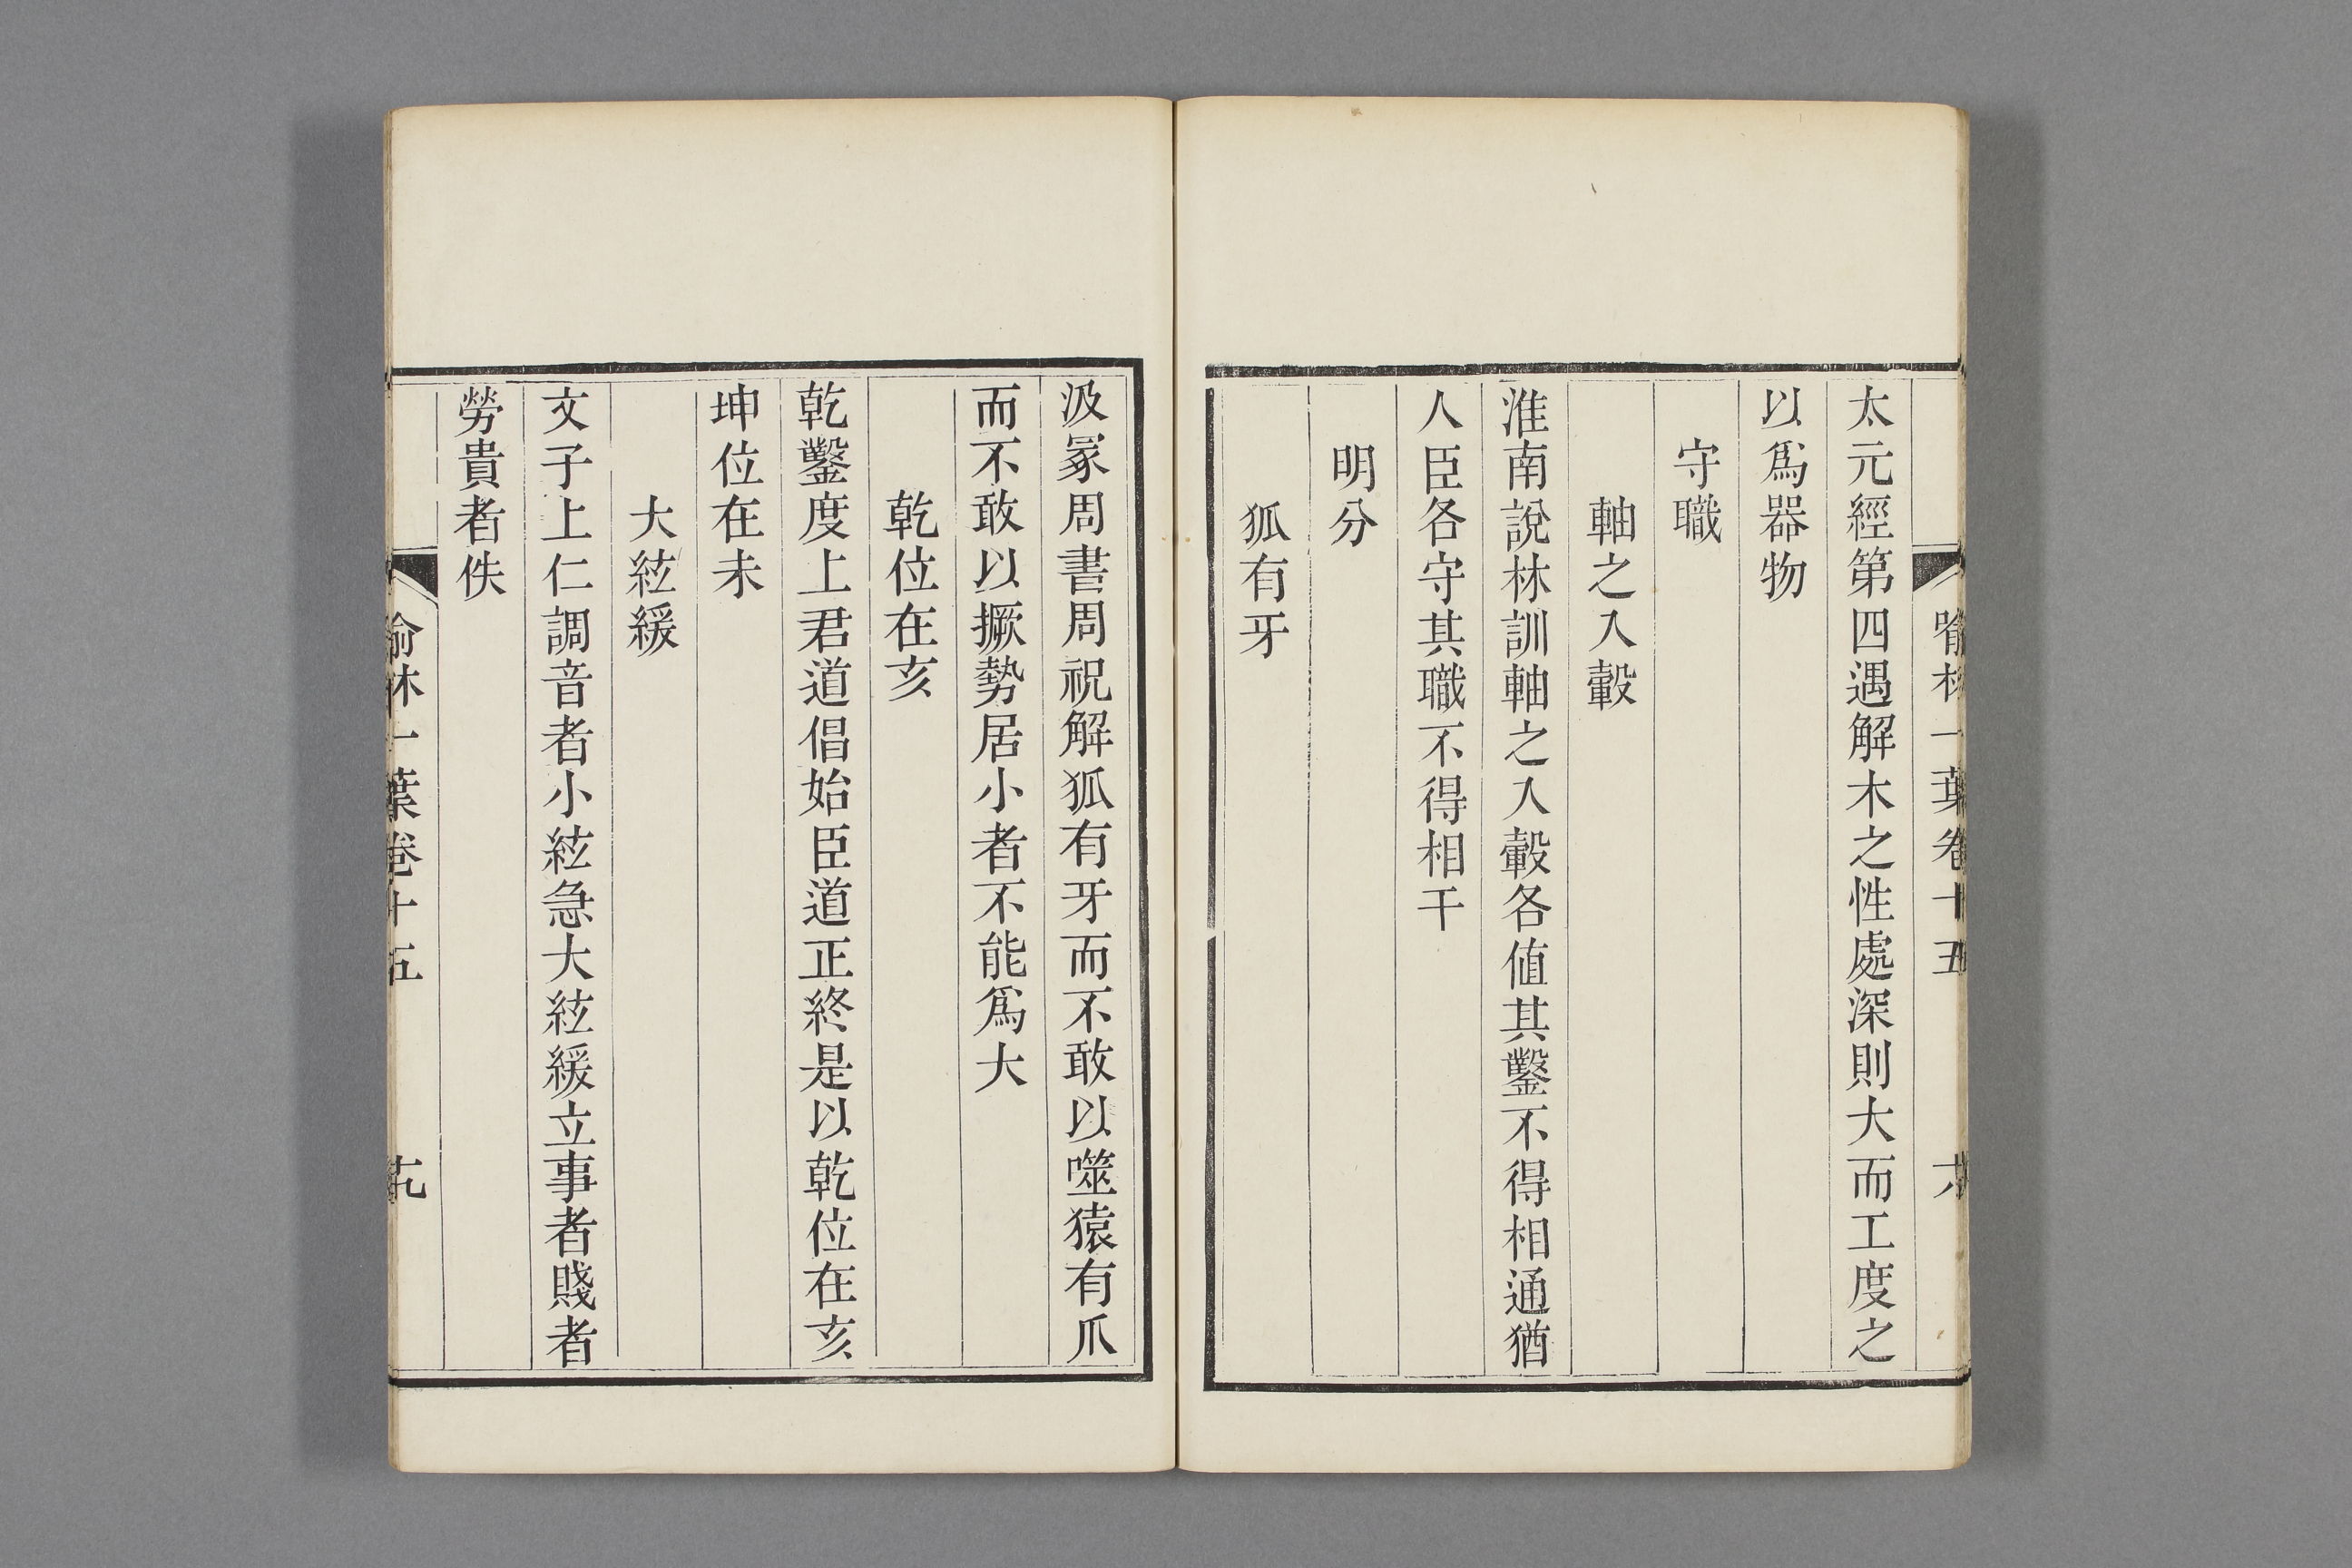 喻林一葉卷十五
六
太元經第四遇解木之性處深則大而工度之
以爲器物
守職
軸之入轂
淮南說林訓軸之入轂各值其鑿不得相通猶
人臣各守其職不得相干
明分
狐有牙
汲冢周書周祝解狐有牙而不敢以噬猿有爪
而不敢以撅勢居小者不能爲大
乾位在亥
乾鑿度上君道倡始臣道正終是以乾位在亥
坤位在未
大絃緩
文子上仁調音者小絃急大絃緩立事者賤者
勞貴者佚
喻林一葉卷十五